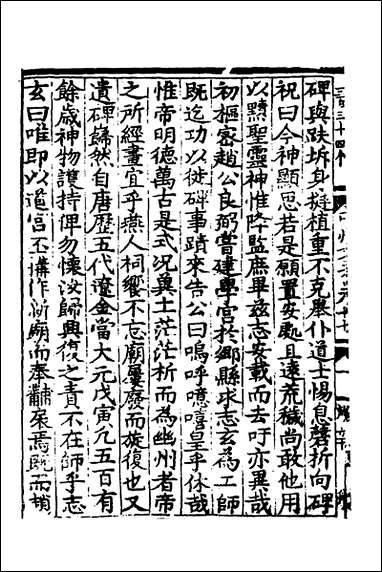 碑與趺坼身擬植重不克舉仆道士惕息磬折向碑
祝曰今神顯思若是願置安處且遠荒穢尚敢他用
以黷聖靈神惟降監庶畢兹志安載而去吁亦異哉
初樞密趙公良弼嘗建學宫於鄉縣求志玄為工師
既迄功以徙碑事蹟來告公曰嗚呼噫嘻皇乎休哉
惟帝明德萬古是式况輿土茫茫析而為幽州者帝
之所經畫宜乎燕人祠饗不忘廟屢廢而旋復也又
遺碑巋然自唐歷五代遼金當大元戊寅凡五百有
餘歲神物護持俾勿懷汝歸興復之責不在師乎志
玄曰唯即以道宫丕搆作新廟而奉黼扆焉既而楨